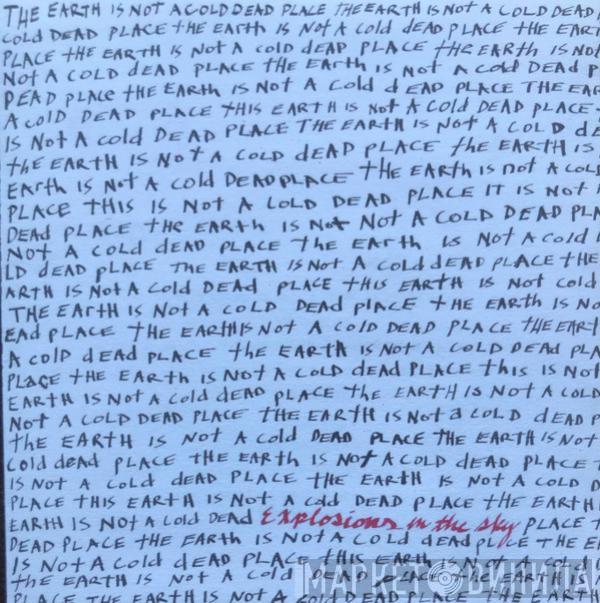 THE EARTH IS NOT A COLD DEAD PLACE THE EARTH IS NOT A COLD DEAD
COLD DEAD PLACE THE EARTH IS NOT A COLD dEAD PLACE THE EAR
PLACE THE EARTH IS NOT A COLD dEAP PLACE THE EARTH IS NOT
NOT A COLD dEAD PLACE THE EARTH IS NOT A COLD DEAD P
DEAD PLACE THE EARTH IS NOT A Cold dEAD PLACE THE EAR
A COLD DEAD PLACE THIS EARTH IS NOT A COLD DEAD PLACE
IS NOT A cold DEAD PLACE THE EARTH IS NOT A COLD dE
the EARTH IS NOT A COLD dEAD PLACE thE EARTH IS
EARTH IS NOT A cold DEAD PLACE tHE EARTH IS not A COL
PLACE THIS IS NOT A COLD DEAD PLACE IT IS NOT
DEAD PLACE THE EARTH IS NOT NOT A COLD DEAD PLA
NOT A COLD dEAD PLACE THE EARTH IS NOT A COLD
LD dEAD PLACE THE EARTH IS NOT A COLD dEAD PLACE THE
ARTH IS NOT A COLD DEAD PLACE tHIS EARTH IS NOT COLD
THE EARTH IS NOT A COLD DEAD PLACE tHE EARTH IS NO
EAD PLACE THE EARTH IS NOT A COLD DEAD PLACE THE EART
A COLD dEAD PLACE tHE EARTH IS NOT A COLD DEAd PLA
PLACE tHE EARTH IS NOT A COLD dEAD PLACE tHIS IS NOT
EARTH IS NOT A COLD dEAD PLACE tHE EARTH IS NOT A COLD
NOT A COLD DEAD PLACE THE EARTH IS NOT a COLD dEAD P
tHE EARTH IS NOT A COLD DEAD PLACE THE EARTH IS NOT
COLD dEAd PLACE THE EARTH IS NOT A COLD dEAD PLACE
IS NOT A COLD dEAD PLACE THE EARTH IS NOT A COLD D
PLACE THIS EARTH IS NOT A COLD DEAD PLACE THE EARTH
EARTH IS NOT A COLD DEAD Explosions in the sky PLACE T
DEAD PLACE THE EARTH IS NOT A COLD dEAD PLACE THE E
IS NOT A COLD dEAD PLACE THIS EARTH NOT A COLD
tHE EARTH IS NOT A COLD DEAD PLACE tHE EARTH IS
NOT A COLD DEAD PLACE THE EARTH
МАРКЕТ ВИНИЛА